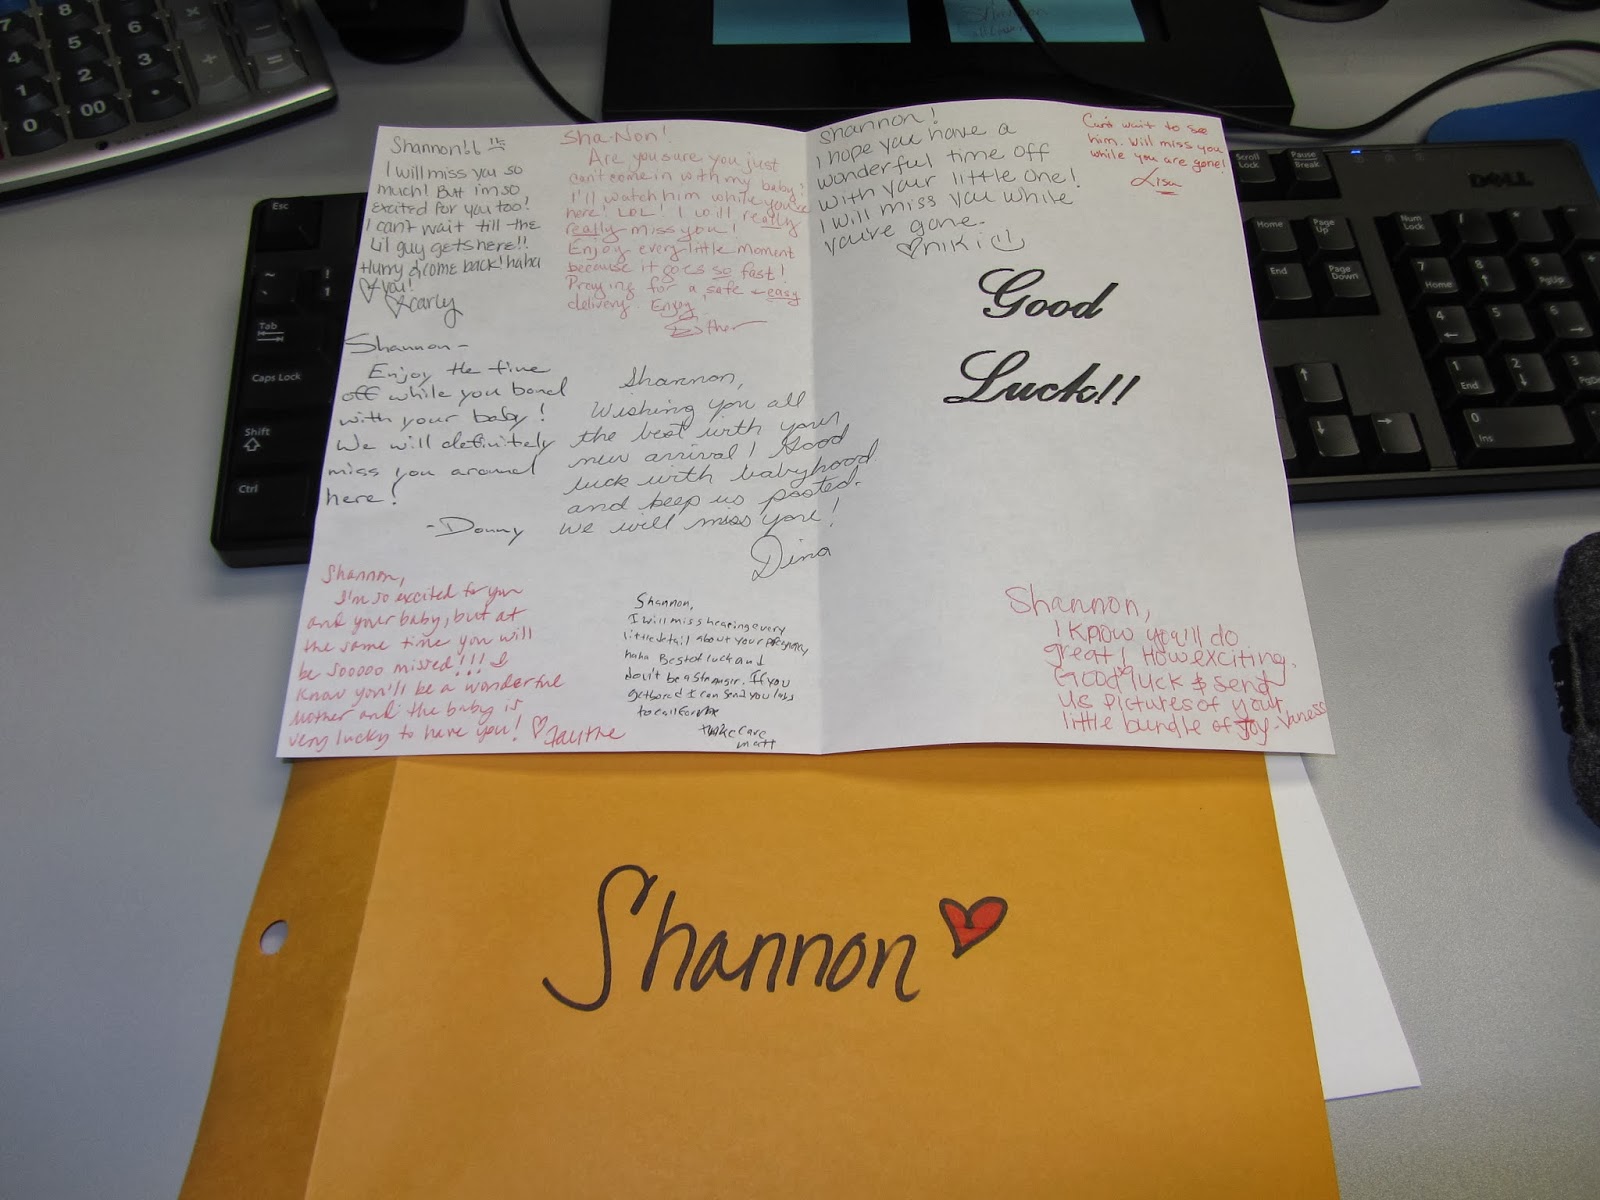 Shannon!!
I will miss you so
much! But i'm so
excited for you too!
I can't wait till the
lil guy gets here!!
Hurry & come back! haha
♡ you!
♡ carly
Sha-Non!
Are you sure you just
can't come in with my baby?
I'll watch him while you're
here! LOL! I will really
really miss you!
Enjoy every little moment
because it goes so fast!
Praying for a safe + easy
delivery. Enjoy!
Esther
Shannon!
I hope you have a
wonderful time off
with your little one!
I will miss you while
you're gone.
♡ niki
Can't wait to see
him. Will miss you
while you are gone!
Lisa
Good
Luck!!
Shannon -
Enjoy the time
off while you bond
with your baby!
We will definitely
miss you around
here!
- Donny
Shannon,
Wishing you all
the best with your
new arrival! Good
luck with babyhood
and keep us posted.
We will miss you!
Dina
Shannon,
I'm so excited for you
and your baby, but at
the same time you will
be sooooo missed!!! I
know you'll be a wonderful
mother and the baby is
very lucky to have you! ♡
Shannon,
I will miss hearing every
little detail about your pregnancy
haha Best of luck and
don't be a stranger. If you
get bored I can send you
to call for me
take care
matt
Shannon,
I know you'll do
great! How exciting.
Good luck & send
us pictures of your
little bundle of Joy. Vaness
Shannon ♥
7 8 5 6 2 3 0 00
× - + =
Esc
~ `
! 1
Tab
Caps Lock
Shift
Ctrl
Scroll Lock
Pause Break
DELL
Home
Page Up
End
Page Down
Num Lock
/ * -
7 Home
8
9 PgUp
4
5
6
1 End
2
3
0 Ins